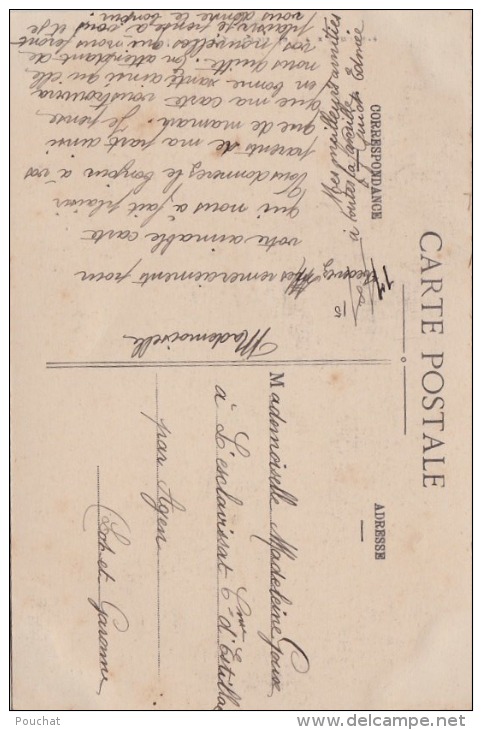 CARTE POSTALE
CORRESPONDANCE
ADRESSE
Mademoiselle
Mes remerciements pour
votre aimable carte
qui nous a fait plaisir
Vous donnerez le bonjour à vos
parents de ma part ainsi
que de maman. Je pense
que ma carte vous trouvera
en bonne santé ainsi qu'elle
nous quitte. En attendant de
vos nouvelles qui nous feront
plaisir je pense à vous et je
vous donne le bonjour.
Mademoiselle Madeleine
à L'esclavissat Cne d'Estillac
par Agen
Lot et Garonne
Pouchat
delcampe.net